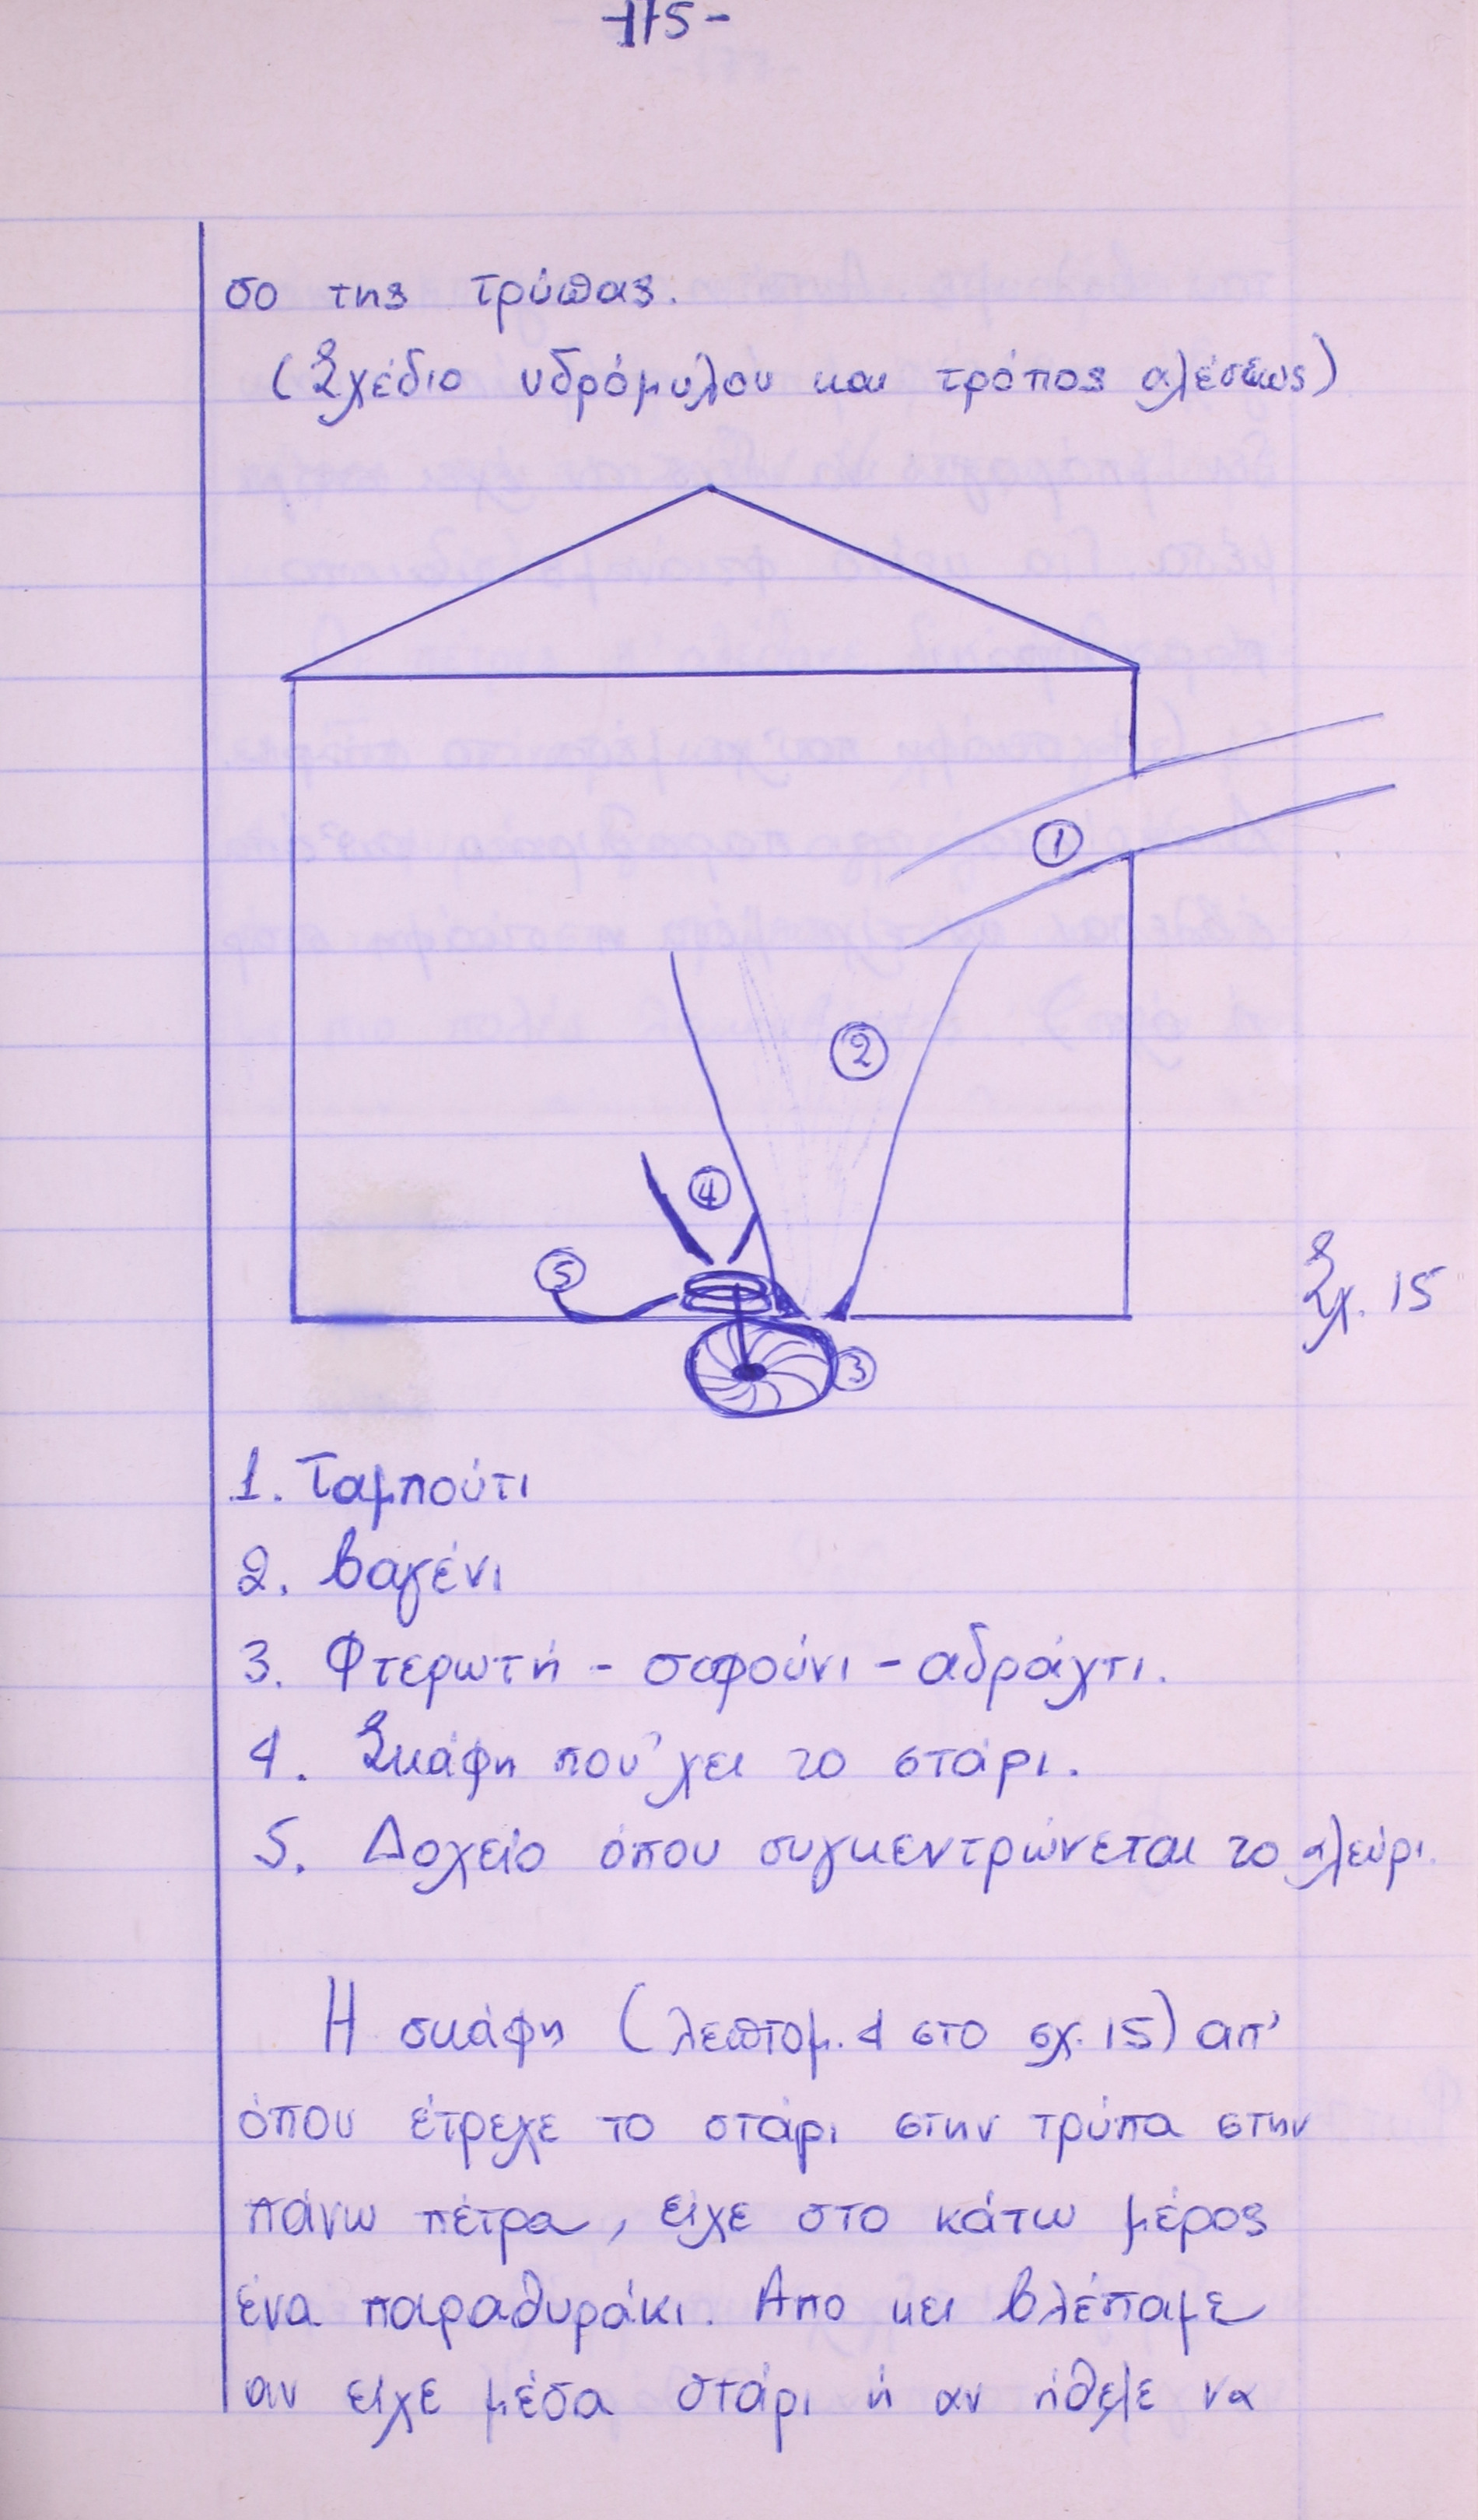 -175-
σο της τρύπας.
(Σχέδιο υδρόμυλου και τρόπος αλέσεως)
1
2
4
5
3
Σχ. 15
1. Ταμπούτι
2. Βαγένι
3. Φτερωτή - σιφούνι - αδράχτι.
4. Σκάφη που' χει το στάρι.
5. Δοχείο όπου συγκεντρώνεται το αλεύρι.
Η σκάφη (λεπτομ. 4 στο σχ. 15) απ'
όπου έτρεχε το στάρι στην τρύπα στην
πάνω πέτρα, είχε στο κάτω μέρος
ένα παραθυράκι. Απο κει βλέπαμε
αν είχε μέσα στάρι ή αν ήθελε να